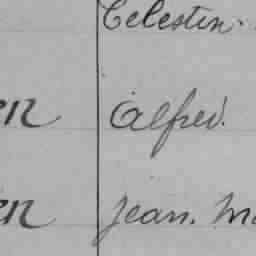 Celestin.
en Alfred.
en Jean. Ma